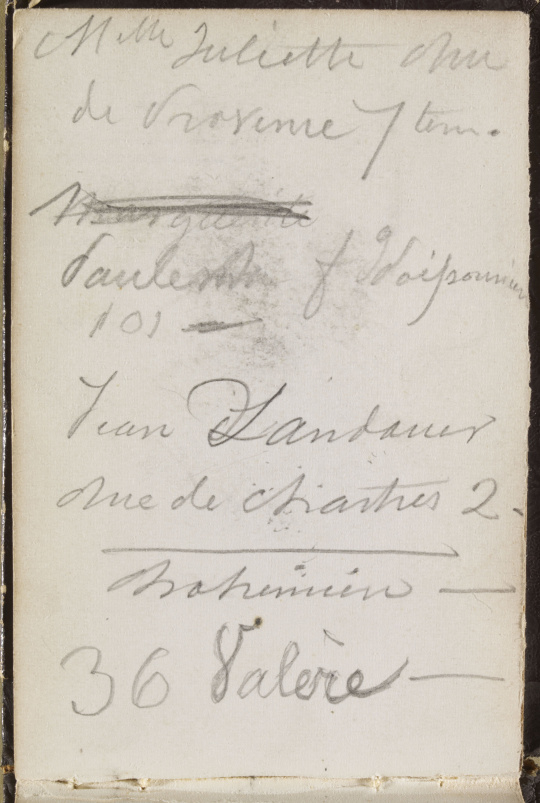 Melle Juliette rue
de Provence 7 ter.
Marguerite
Paule f. Poissonnier
101 —
Jean Landauer
rue de Chartres 2.
bohémien —
36 Valère —